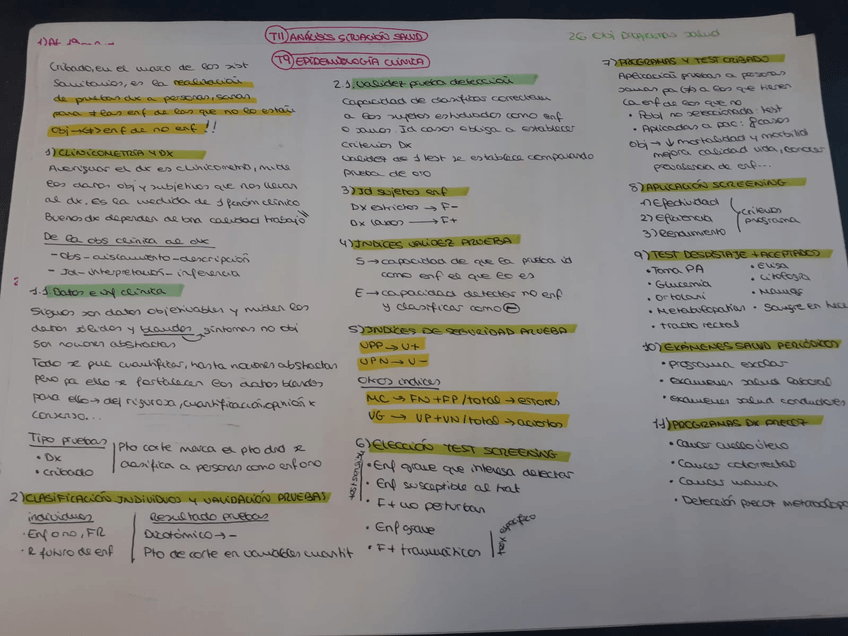 T11) ANÁLISIS SITUACIÓN SALUD
T9) EPIDEMIOLOGÍA CLÍNICA
Cribado, en el marco de los sist
Sanitarios, es la realización
de pruebas dx a personas, sanas,
para ≠ las enf de las que no lo están
Obj → ≠ enf de no enf!!
1) CLINICOMETRÍA Y DX
Averiguar el dx es clinicometría, mide
los datos obj y subjetivos que nos llevan
al dx. Es la medida de 1 fenóm clínico
Buenos dx dependen de una calidad trabajo
De la obs clínica al dx
- Obs - aislamiento - descripción
- Id - interpretación - inferencia
1.1 Datos e inf clínica
Signos son datos objetivables y miden los
datos sólidos y blandos, síntomas no obj
Son nociones abstractas
Todo se pue cuantificar, hasta nociones abstractas
pero pa ello se fortalecen los datos blandos
para ello → def rigurosa, cuantificación, opinión x
consenso...
Tipo pruebas
• Dx
• Cribado
Pto corte marca el pto dnd se
clasifica a personas como enf o no
2) CLASIFICACIÓN INDIVIDUOS Y VALIDACIÓN PRUEBAS
individuos
• Enf o no, FR
• R futuro de enf
Resultado pruebas
Dicotómico → -
Pto de corte en variables cuantit
2.1 Validez prueba detección
Capacidad de clasificar correctam
a los sujetos estudiados como enf
o sanos. Id casos obliga a establecer
criterios Dx
Validez de 1 test se establece comparando
prueba de oro
3) Id sujetos enf
Dx estrictos → F-
Dx laxos → F+
4) ÍNDICES VALIDEZ PRUEBA
S → capacidad de que la prueba id
como enf es que lo es
E → capacidad detectar no enf
y clasificar como -
5) ÍNDICES DE SEGURIDAD PRUEBA
VPP → V+
VPN → V-
Otros índices
MC → FN+FP/total → errores
VG → VP+VN/total → aciertos
6) ELECCIÓN TEST SCREENING
• Enf grave que interesa detectar
• Enf susceptible al trat
• F+ no perturban
• Enf grave
• F+ traumáticos
test específico
7) PROGRAMAS Y TEST CRIBADO
Aplicación pruebas a personas
sanas pa (≠) a los que tienen
la enf de los que no
• Pobl no seleccionada: test
Obj → ↓ mortalidad y morbilid
mejora calidad vida, conocer
prevalencia de enf...
8) APLICACIÓN SCREENING
1) Efectividad
2) Eficiencia
3) Rendimiento
Criterios
programa
9) TEST DESPISTAJE + ACEPTADOS
• Toma PA
• Glucemia
• Ortolani
• Metabulopatías
• Tracto rectal
• Elisa
• Citología
• Mamog
• Sangre en hece
10) EXÁMENES SALUD PERIÓDICOS
• Programa escolar
• Exámenes salud laboral
• Exámenes salud conductores
11) PROGRAMAS DX PRECOZ
• Cáncer cuello útero
• Cáncer colorrectal
• Cáncer mama
• Detección precoz metabolopa